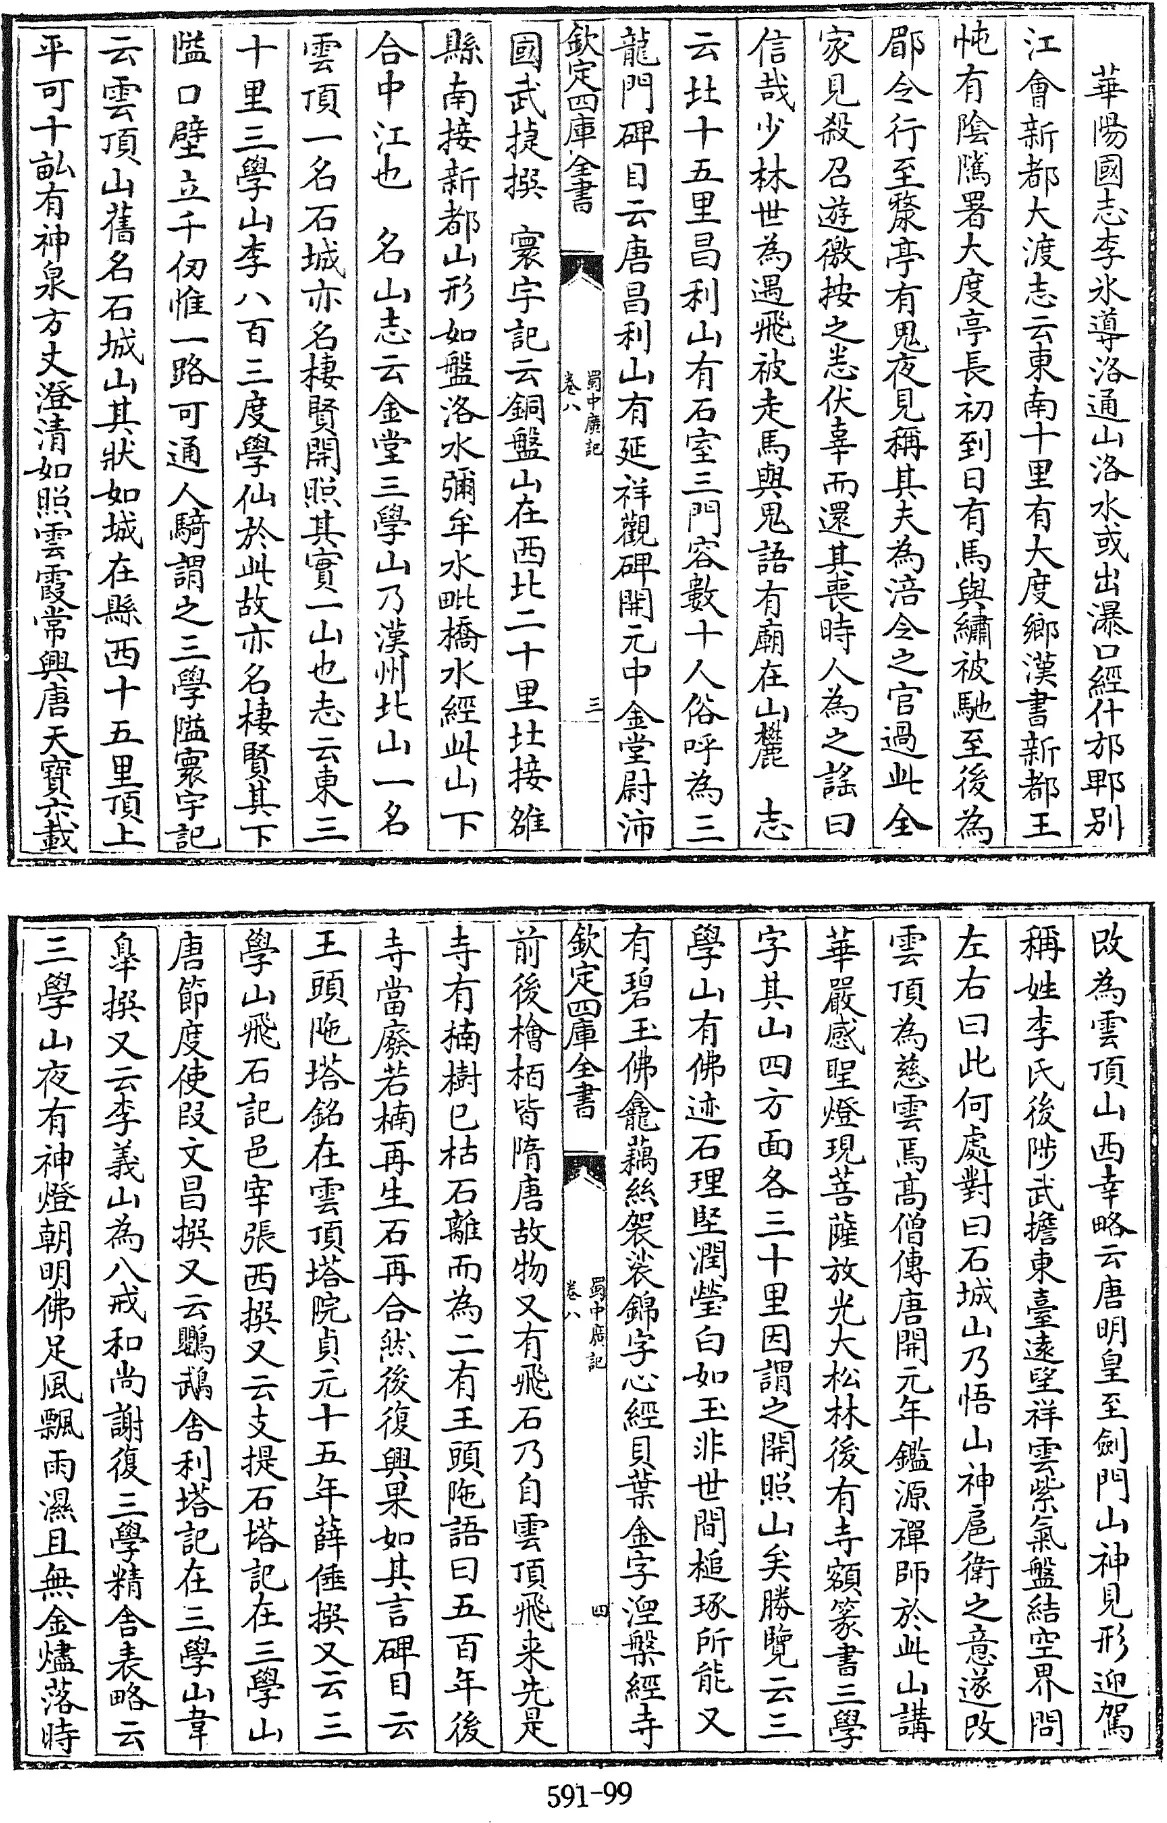 華陽國志李氷導洛通山洛水或出瀑口經什邡郫别
江會新都大渡志云東南十里有大度鄉漢書新都王
忳有陰隲署大度亭長初到日有馬與繡被馳至後為
郿令行至斄亭有鬼夜見稱其夫為涪令之官過此全
家見殺召遊徼按之悉伏辜而還其喪時人為之謡曰
信哉少林世為遇飛被走馬與鬼語有廟在山麓　志
云北十五里昌利山有石室三門容數十人俗呼為三
龍門碑目云唐昌利山有延祥觀碑開元中金堂尉沛
欽定四庫全書
蜀中廣記
卷八
三
國武捷撰　寰宇記云銅盤山在西北二十里北接雒
縣南接新都山形如盤洛水彌牟水毗橋水經此山下
合中江也　名山志云金堂三學山乃漢州北山一名
雲頂一名石城亦名棲賢開照其實一山也志云東三
十里三學山李八百三度學仙於此故亦名棲賢其下
隘口壁立千仞惟一路可通人騎謂之三學隘寰宇記
云雲頂山舊名石城山其狀如城在縣西十五里頂上
平可十畝有神泉方丈澄清如照雲霞常興唐天寶六載
改為雲頂山西幸略云唐明皇至劍門山神見形迎駕
稱姓李氏後陟武擔東臺遠望祥雲紫氣盤結空界問
左右曰此何處對曰石城山乃悟山神扈衛之意遂改
雲頂為慈雲焉高僧傳唐開元年鑑源禪師於此山講
華嚴感聖燈現菩薩放光大松林後有寺額篆書三學
字其山四方面各三十里因謂之開照山矣勝覽云三
學山有佛迹石理堅潤瑩白如玉非世間槌琢所能又
有碧玉佛龕藕絲袈裟錦字心經貝葉金字湼槃經寺
欽定四庫全書
蜀中廣記
卷八
四
前後檜栢皆隋唐故物又有飛石乃自雲頂飛来先是
寺有楠樹已枯石離而為二有王頭陁語曰五百年後
寺當廢若楠再生石再合然後復興果如其言碑目云
王頭陁塔銘在雲頂塔院貞元十五年薛倕撰又云三
學山飛石記邑宰張西撰又云支提石塔記在三學山
唐節度使叚文昌撰又云鸚鵡舍利塔記在三學山韋
臯撰又云李義山為八戒和尚謝復三學精舍表略云
三學山夜有神燈朝明佛足風飄雨濕且無金燼落時
591-99